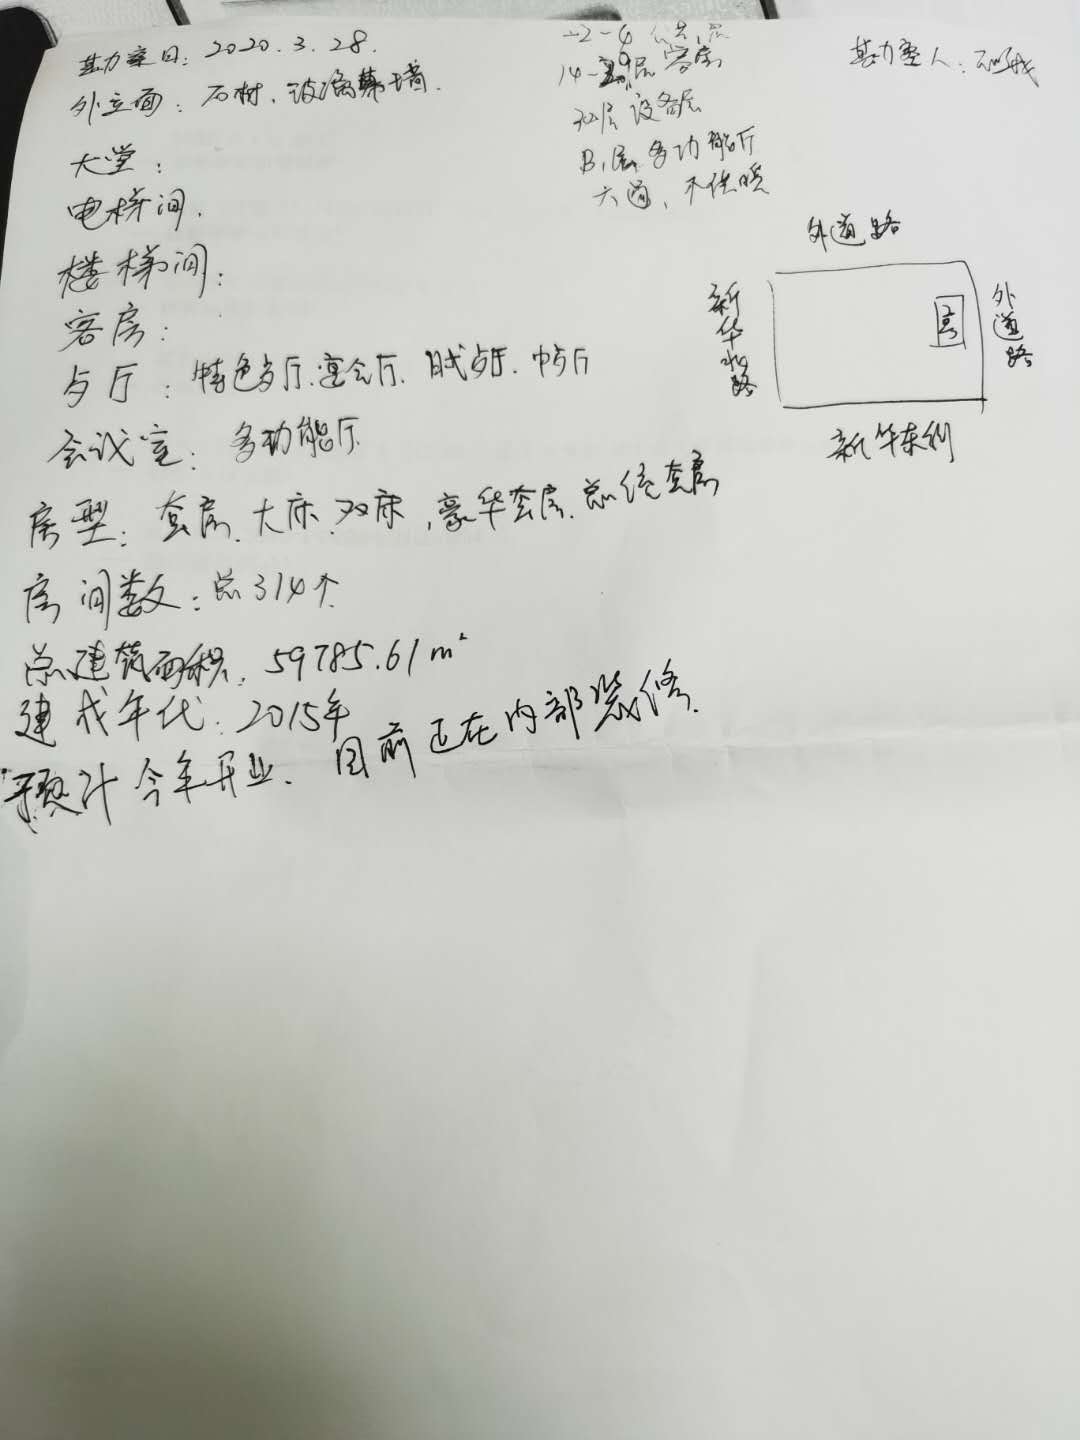 勘察日：2020.3.28.
外立面：石材、玻璃幕墙.
大堂：
电梯间.
楼梯间：
客房：
歺厅：特色歺厅.宴会厅.日式歺厅.中歺厅
会议室：多功能厅
房型：套房、大床、双床，豪华套房、总统套房
房间数：总314个
总建筑面积：59785.61m²
建成年代：2015年
预计今年开业.目前正在内部装修.
-2-4
14- 层客房
层设备层
B1层多功能厅
六通，不供暖
勘察人：
外道路
新华路
2号
外道路
新华东街